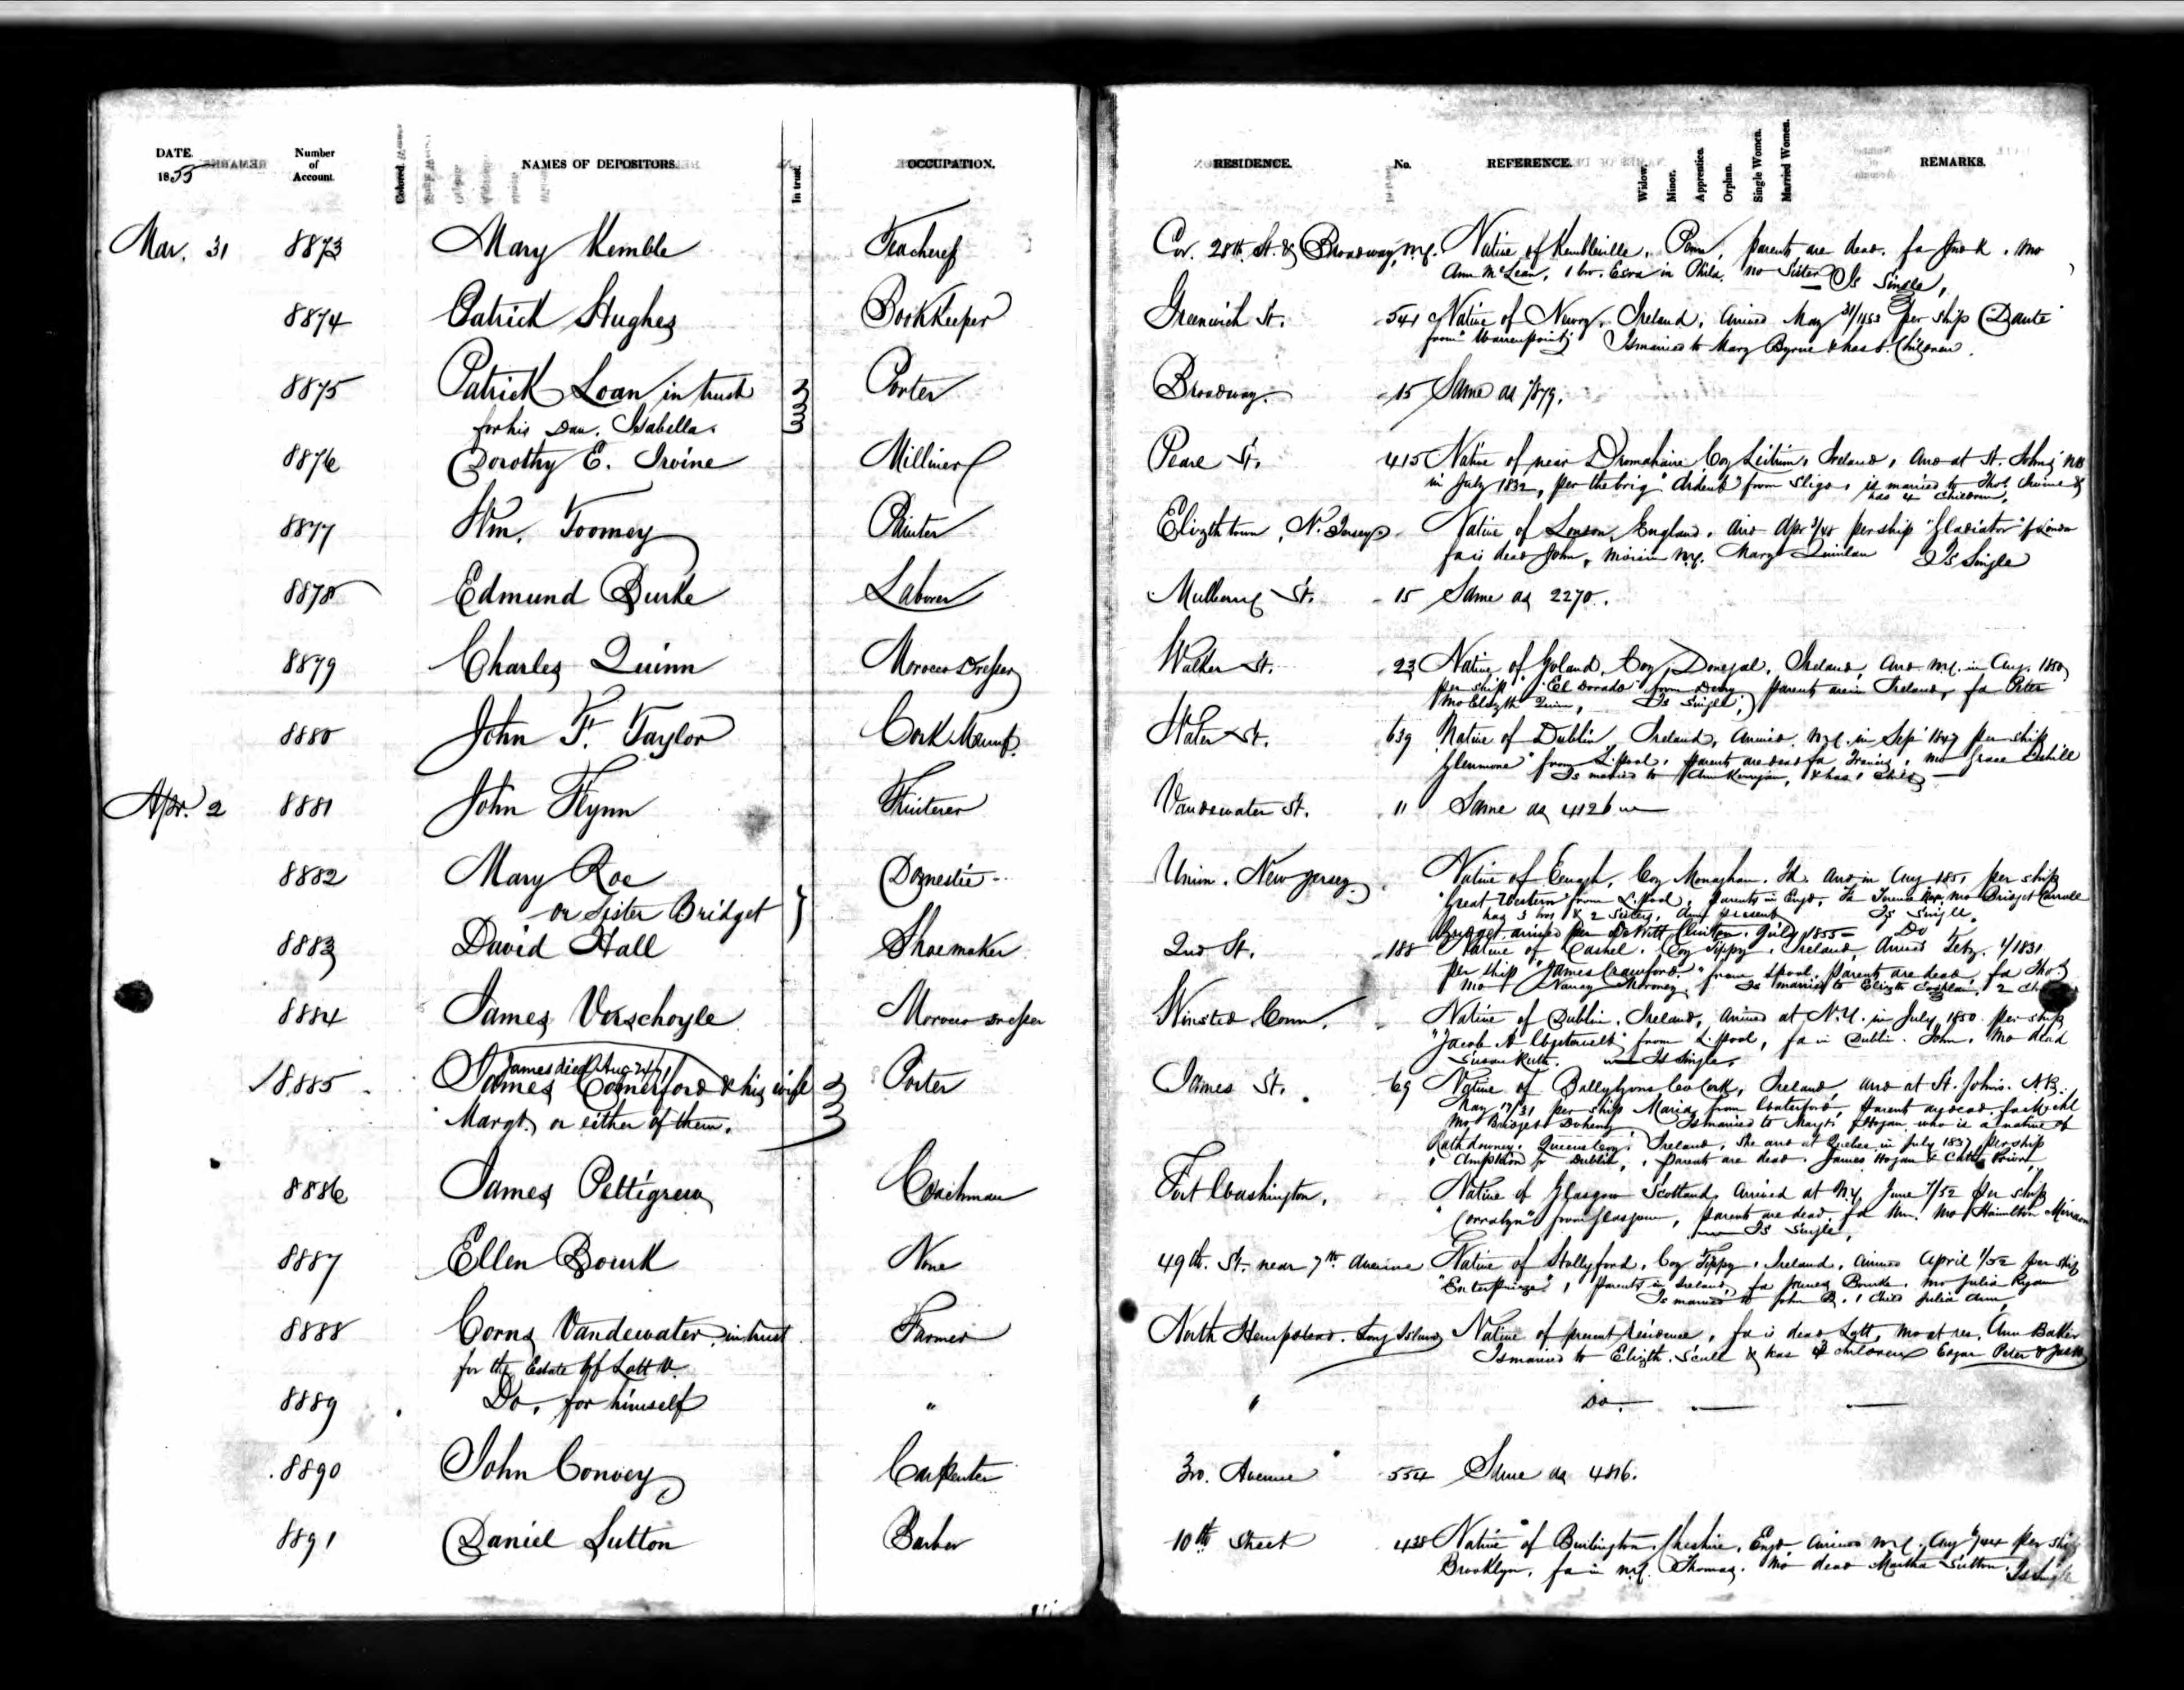 DATE. 1855 Number of Account. Colored. NAMES OF DEPOSITORS. In trust. OCCUPATION. RESIDENCE. No. REFERENCE. Widow. Minor. Apprentice. Orphan. Single Women. Married Women. REMARKS.
Mar. 31 8873 Mary Kemble Teacheress Cor. 28th St. & Broadway, N.Y. Native of Kembleville, Penn, parents are dead. fa Jno K. mo
Ann McLean, 1 bro. Esra in Phila. no Sister Is Single,
8874 Patrick Hughes BookKeeper Greenwich St. 541 Native of Newry, Ireland, arrived May 31/1853 per ship Dante
from Warrenpoint Is married to Mary Byrne & has Children.
8875 Patrick Loan in trust Porter Broadway. 15 Same as 7879.
for his Dau. Isabella.
8876 Dorothy E. Irvine Milliner Pearl St. 415 Native of near Dromahaire Coy Leitrim, Ireland, arrd at St. Johns NB
in July 1832, per the brig "Ardent" from Sligo, is married to Thos. Irvine &
has 4 children.
8877 Wm. Toomey Printer Elizthtown, N. Jersey Native of London, England. arrd Apr 3/48 per ship "Gladiator" f London
fa is dead John, mo is in N.Y. Mary Quinlan Is Single
8878 Edmund Burke Laborer Mulberry St. 15 Same as 2270.
8879 Charles Quinn Morocco Dresser Walker St. 23 Native of Goland, Coy Donegal, Ireland, arrd N.Y. in Aug. 1850
per ship "El Dorado" from Derry, parents are in Ireland, fa Peter
mo Elizth Quinn, Is Single,
8880 John F. Taylor Cork Manuf. Water St. 639 Native of Dublin Ireland, arrived N.Y. in Sep 1847 per ship
"Glenmore" from L.pool, parents are dead fa Francis, mo Grace Cahill
Is married to Ann Kerrigan, & has 1 child
Apr. 2 8881 John Flynn Fruiterer Vandewater St. 11 Same as 4126
8882 Mary Roe Domestic Union, New Jersey Native of, Coy Monaghan. Id. arrd in Aug 1851 per ship
or Sister Bridget "Great Western" from L.pool, parents in Engd, Fa Terence Roe, mo Bridget Carroll
has 3 bros & 2 Sisters, Ann present Is Single.
Bridget arrived per DeWitt Clinton, July 1855 Do
8883 David Hall Shoemaker 2nd St. 188 Native of Cashel, Coy Tippy, Ireland, Arrived Feby. 1/1831
per ship "James Crawford" from L.pool. parents are dead, fa Thos.
mo Nancy Moroney, Is married to Elizth 2 ch
8884 James Verschoyle Morocco Dresser Winsted, Conn. Native of Dublin, Ireland, arrived at N.Y. in July 1850 per ship
"Jacob A Westervelt" from L.pool, fa in Dublin. John, mo dead
Susan Ruth. Is Single.
James died Aug 24/71
8885 James Comerford & his wife Porter James St. 69 Native of Ballylyons Co Cork, Ireland, arrd at St. Johns. N.B.
Margt. or either of them. May 17/31 per ship Maria from Waterford, Parents are dead. fa Michl
mo Bridget Doheny Is married to Margt. Hogan who is a native of
Rathdowney, Queens Coy, Ireland. She arrd at Quebec in July 1837 per ship
Ampton fr Dublin, parents are dead. James Hogan & Cath Prior,
8886 James Pettigrew Coachman Fort Washington, Native of Glasgow Scotland, Arrived at N.Y. June 7/52 per ship
"Corralyn" from Glasgow, parents are dead, fa Wm. mo Hamilton Mirriam
Is Single,
8887 Ellen Bourk None 49th. St. near 7th. Avenue Native of Hollyford, Coy Tippy, Ireland. arrived April 1/52 per ship
"Enterprize", parents in Ireland, fa James Bourke. mo Julia Ryan
Is married to John B. 1 child Julia Ann,
8888 Corns Vandewater, in trust Farmer North Hempstead, Long Island Native of present residence, fa is dead Lott, mo at res. Ann Baker
for the Estate of Lott V. Is married to Elizth. Scull & has 4 children Edgar Peter &
8889 Do. for himself " " Do.
8890 John Convey Carpenter 3rd. Avenue 554 Same as 4816.
8891 Daniel Sutton Barber 10th Street 438 Native of Burlington, Cheshire, Engd arrived N.Y. Aug per ship
Brooklyn, fa in N.Y. Thomas. mo dead Martha Sutton. Is Single